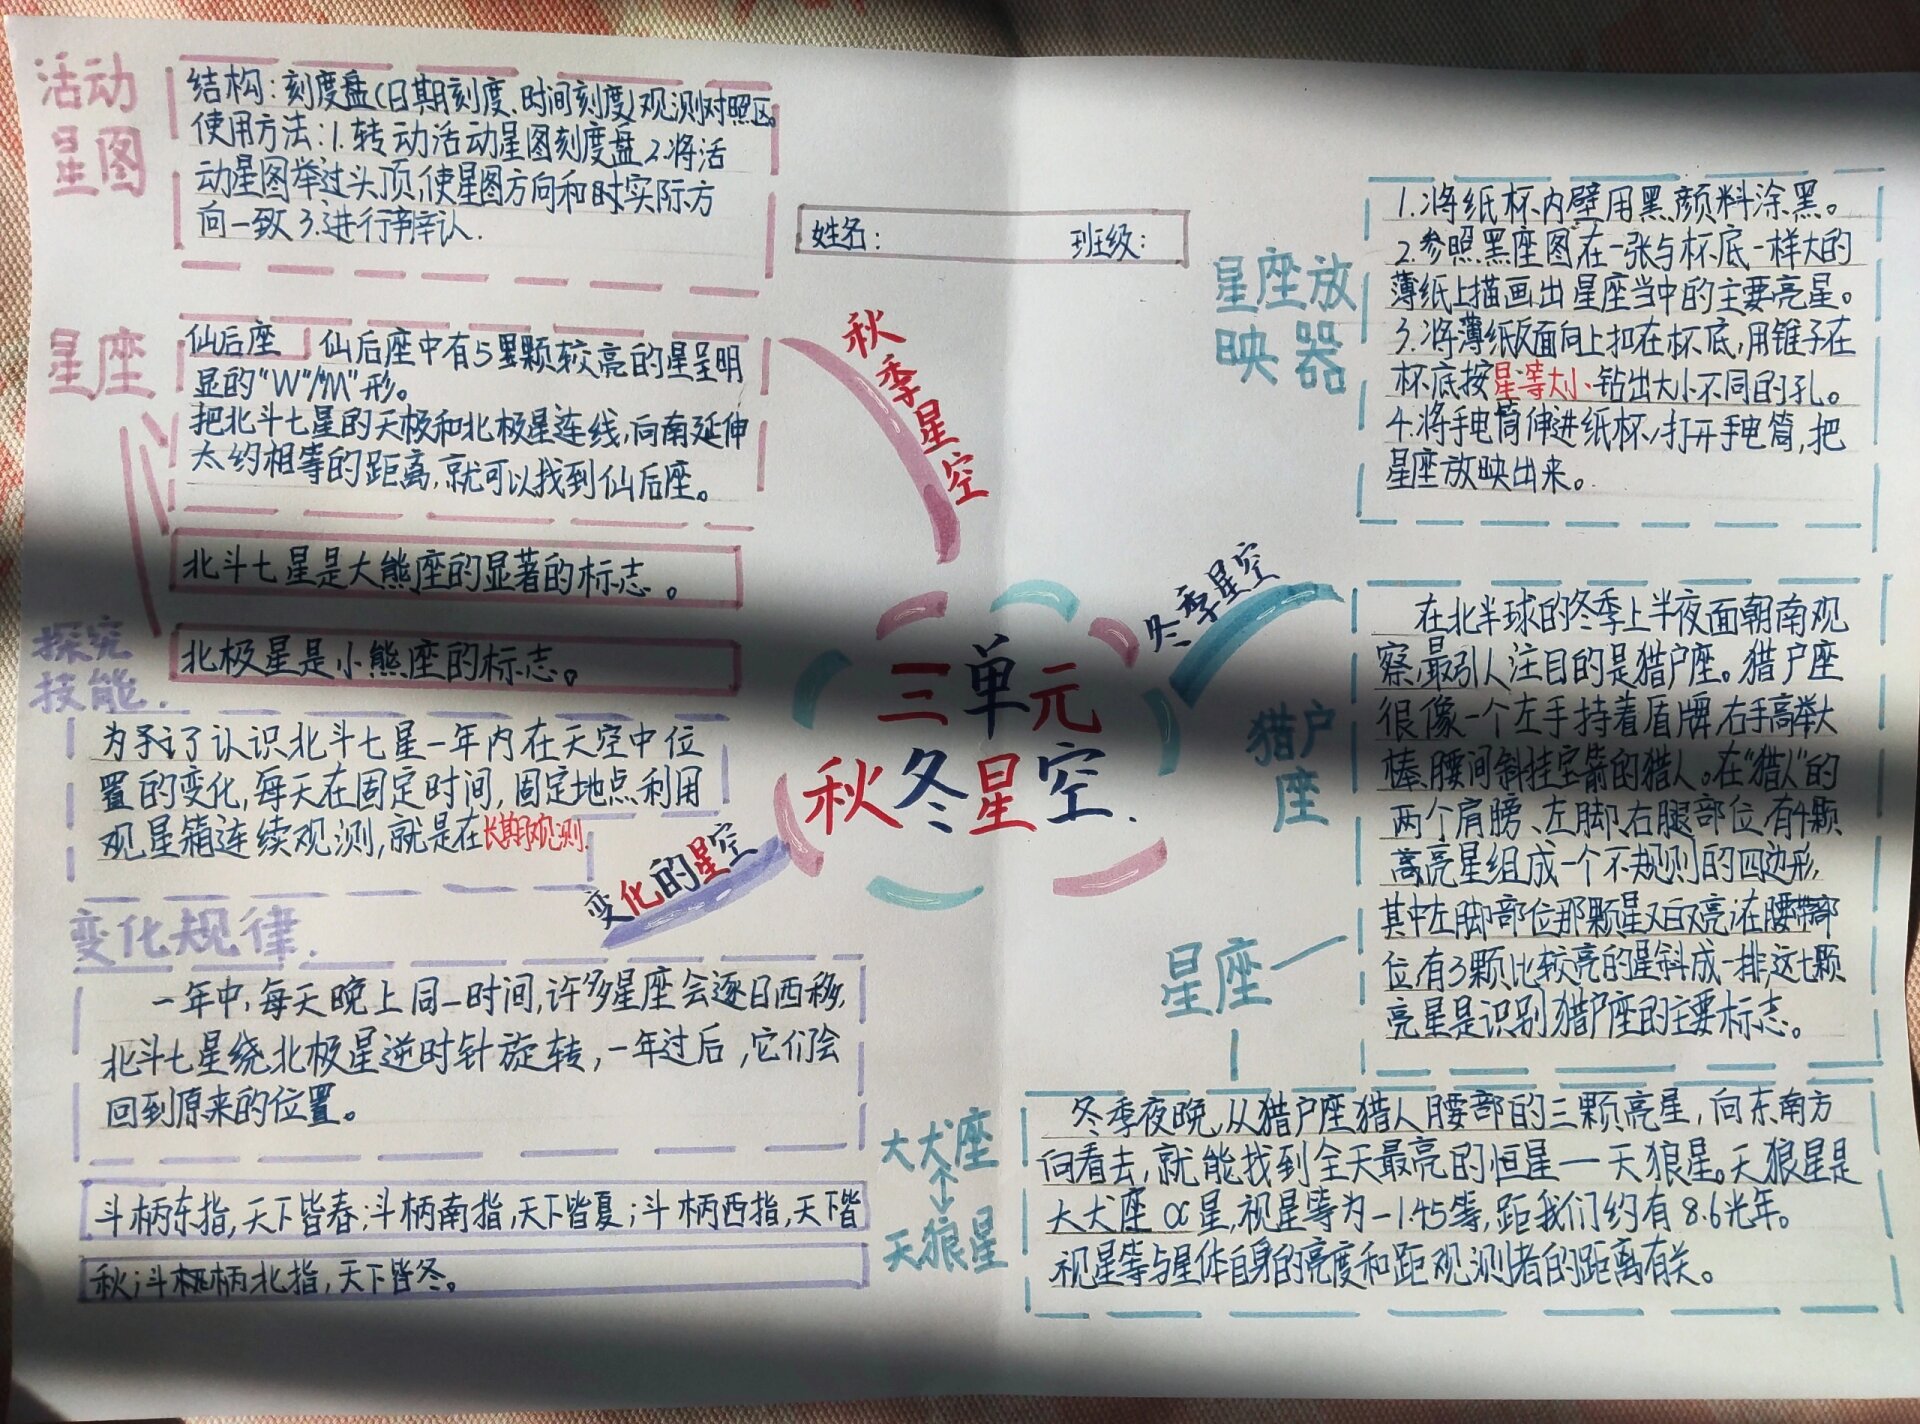 活动
星图
结构:刻度盘(日期刻度、时间刻度)观测对照区。
使用方法:1.转动活动星图刻度盘2.将活
动星图举过头顶,使星图方向和时实际方
向一致3.进行辨认.
姓名:
班级:
星座
仙后座
仙后座中有5颗较亮的星呈明
显的"W"/"M"形。
把北斗七星的天极和北极星连线,向南延伸
大约相等的距离,就可以找到仙后座。
北斗七星是大熊座的显著的标志。
北极星是小熊座的标志。
秋季星空
探究
技能.
为了认识北斗七星一年内在天空中位
置的变化,每天在固定时间,固定地点利用
观星箱连续观测,就是在长期观测.
变化的星空
变化规律.
一年中,每天晚上同一时间,许多星座会逐日西移,
北斗七星绕北极星逆时针旋转,一年过后,它们会
回到原来的位置。
斗柄东指,天下皆春;斗柄南指,天下皆夏;斗柄西指,天下皆
秋;斗柄北指,天下皆冬。
三单元
秋冬星空.
冬季星空
星座放
映器
1.将纸杯内壁用黑颜料涂黑。
2.参照黑座图在一张与杯底一样大的
薄纸上描画出星座当中的主要亮星。
3.将薄纸反面向上扣在杯底,用锥子在
杯底按星等大小钻出大小不同的孔。
4.将手电筒伸进纸杯,打开手电筒,把
星座放映出来。
猎户
座
在北半球的冬季上半夜面朝南观
察,最引人注目的是猎户座。猎户座
很像一个左手持着盾牌,右手高举大
棒、腰间斜挂宝箭的猎人。在"猎人"的
两个肩膀、左脚、右腿部位,有4颗
高亮星组成一个不规则的四边形,
其中左脚部位那颗星又白又亮;在腰带部
位,有3颗比较亮的星斜成一排,这七颗
亮星是识别猎户座的主要标志。
星座
大犬座
↕
天狼星
冬季夜晚,从猎户座猎人腰部的三颗亮星,向东南方
向看去,就能找到全天最亮的恒星—天狼星。天狼星是
大犬座α星,视星等为-1.45等,距我们约有8.6光年。
视星等与星体自身的亮度和距观测者的距离有关。